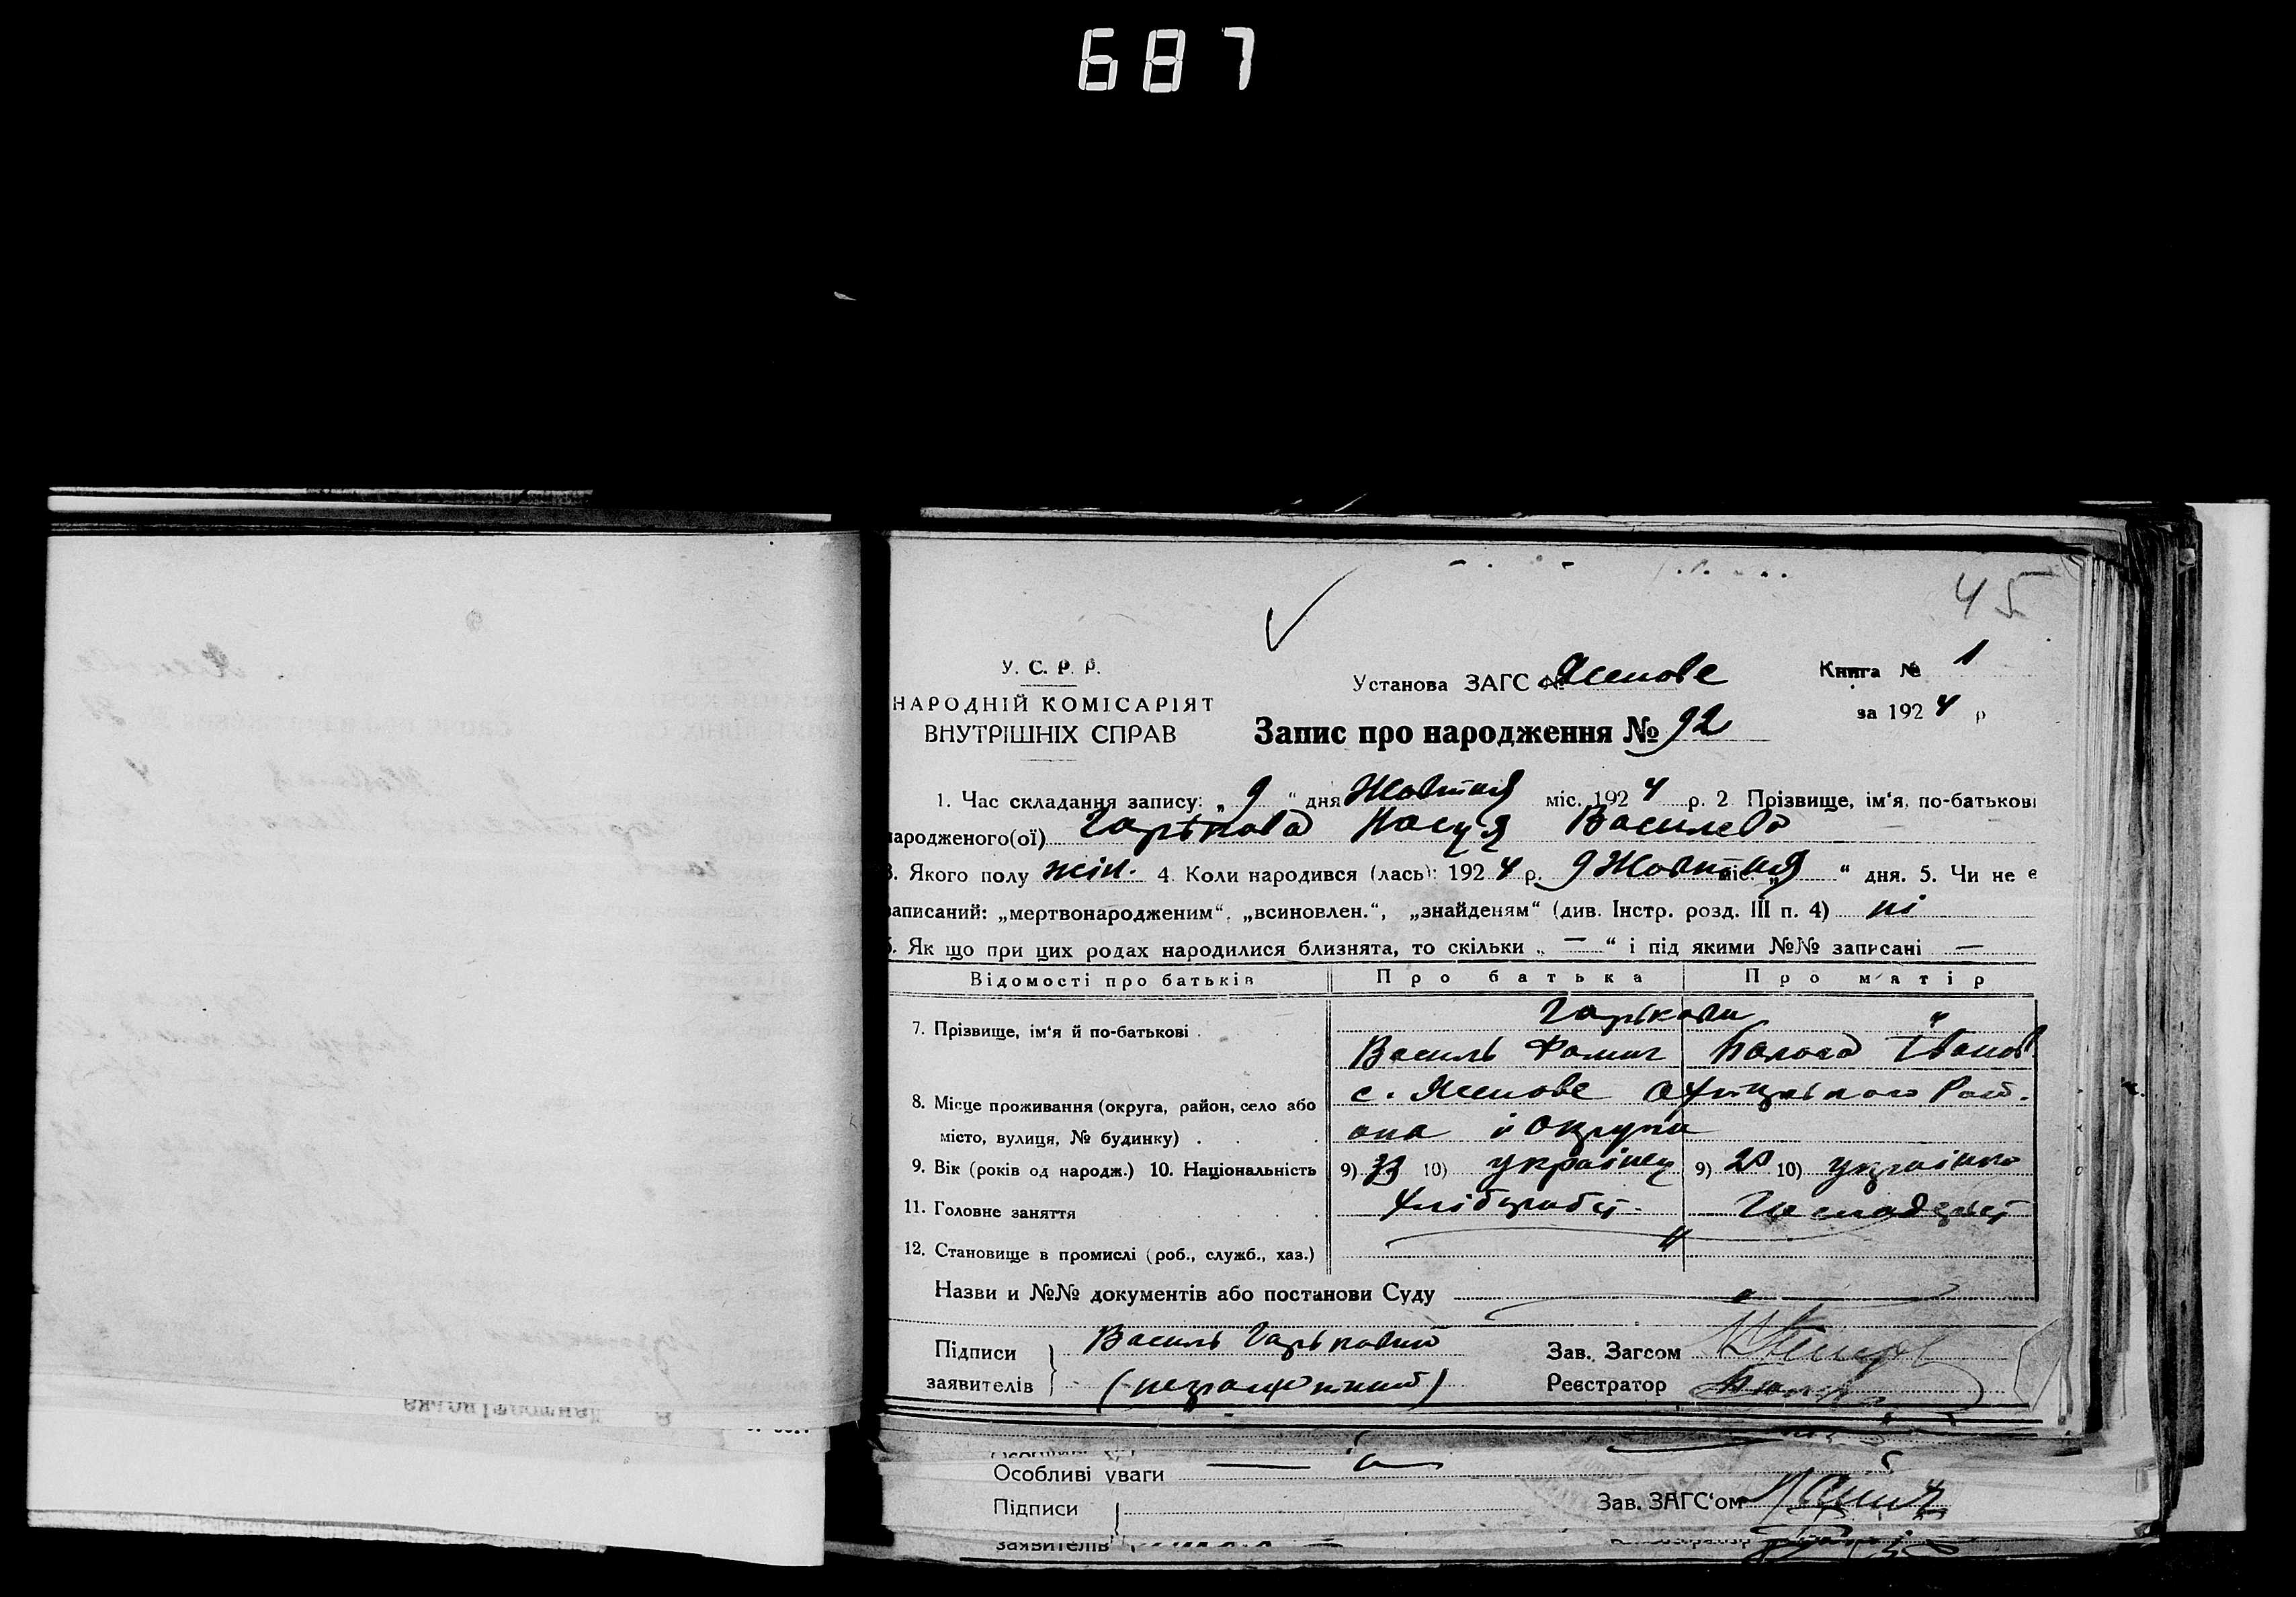 687
45
У. С. Р. Р.
НАРОДНІЙ КОМІСАРІЯТ
ВНУТРІШНІХ СПРАВ
Установа ЗАГС № Ясенове
Книга № 1
за 1924 р
Запис про народження № 92
1. Час складання запису: „ 9 “ дня Жовтня міс. 1924 р. 2 Прізвище, ім‘я, по-батькові
народженого(ої) Гарькава Василева
3. Якого полу жін. 4. Коли народився (лась): 1924 р. 9 Жовтня міс. „ “ дня. 5. Чи не є
записаний: „мертвонародженим“, „всиновлен.“, „знайденям“ (див. Інстр. розд. III п. 4) ні
6. Як що при цих родах народилися близнята, то скільки „ — “ і під якими №№ записані —
Відомості про батьків Про батька Про матір
7. Прізвище, ім‘я й по-батькові . Гарькави "
Василь Фомич Іванов.
8. Місце проживання (округа, район, село або с. Ясенове Рай-
місто, вулиця, № будинку) . . . она й Округи
9. Вік (років од народж.) 10. Національність 9) 33 10) українец 9) 20 10) українка
11. Головне заняття . . . Хлібороб
12. Становище в промислі (роб., служб., хаз.) "
Назви и №№ документів або постанови Суду
Підписи Василь Гарькавий Зав. Загсом
заявителів (неграмотний) Реєстратор
Особливі уваги
Підписи Зав. ЗАГС‘ом
заявителів